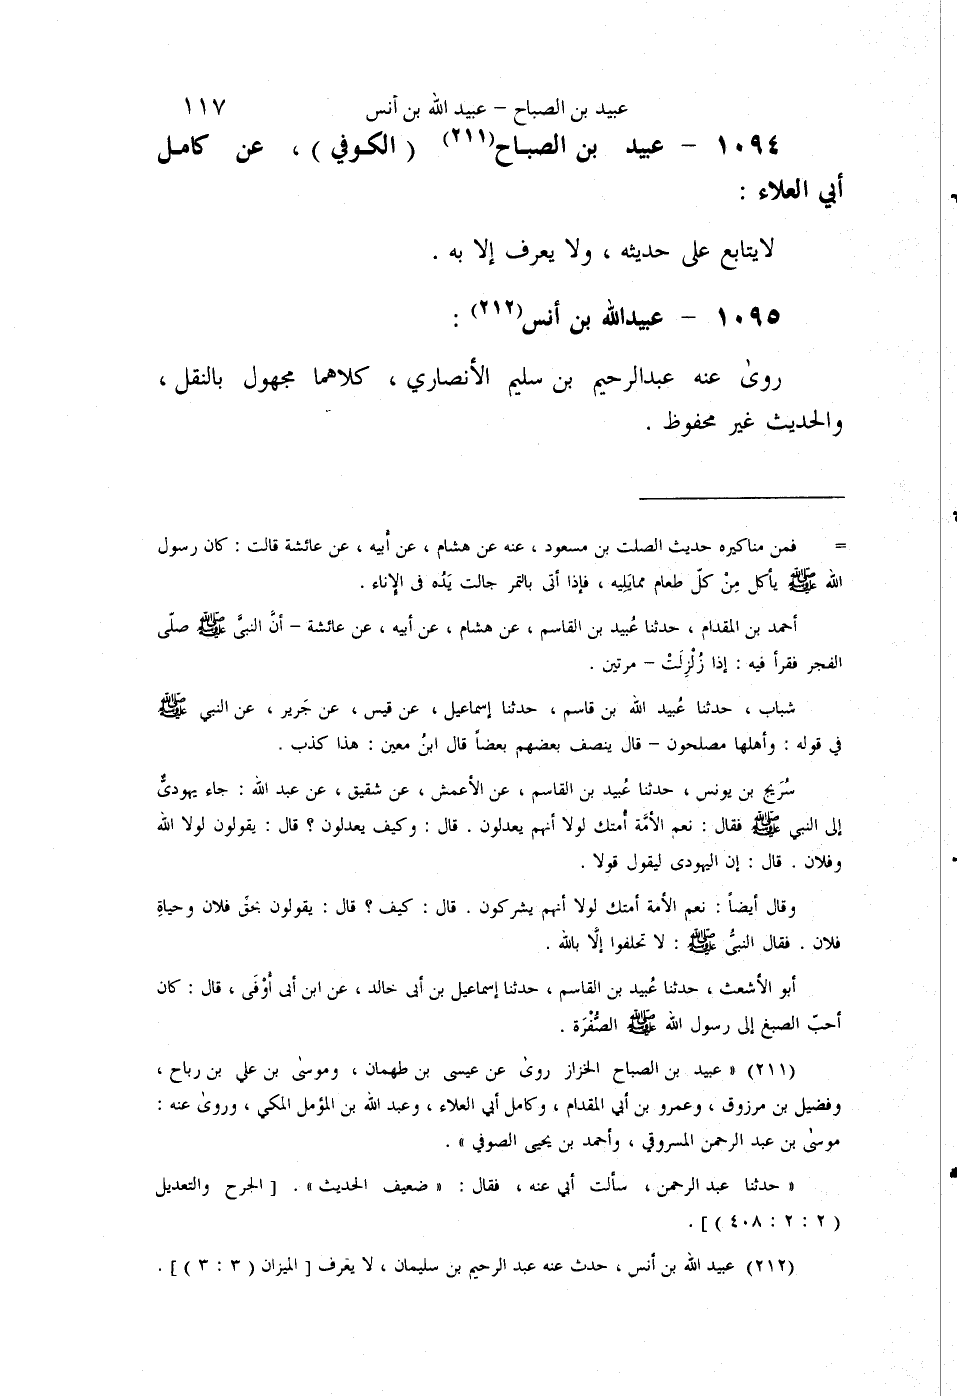 عبيد بن الصباح – عبيد الله بن أنس ١١٧
١٠٩٤ – عبيد بن الصباح(٢١١) (الكوفي) ، عن كامل
أبي العلاء :
لايتابع على حديثه ، ولا يعرف إلا به .
١٠٩٥ – عبيدالله بن أنس(٢١٢) :
روىٰ عنه عبدالرحيم بن سليم الأنصاري ، كلاهما مجهول بالنقل ،
والحديث غير محفوظ .
= فمن مناكيره حديث الصلت بن مسعود ، عنه عن هشام ، عن أبيه ، عن عائشة قالت : كان رسول
الله ﷺ يأكل مِنْ كلّ طعام ممايَلِيه ، فإذا أتى بالتمر جالت يَدُه فى الإناء .
أحمد بن المقدام ، حدثنا عُبيد بن القاسم ، عن هشام ، عن أبيه ، عن عائشة – أنَّ النبىَّ ﷺ صلّى
الفجر فقرأ فيه : إذا زُلْزِلَتْ – مرتين .
شباب ، حدثنا عُبيد الله بن قاسم ، حدثنا إسماعيل ، عن قيس ، عن جَرير ، عن النبي ﷺ
في قوله : وأهلها مصلحون – قال ينصف بعضهم بعضاً قال ابنُ معين : هذا كذب .
سُرَيج بن يونس ، حدثنا عُبيد بن القاسم ، عن الأعمش ، عن شقيق ، عن عبد الله : جاء يهودىٌّ
إلى النبي ﷺ فقال : نعم الأمَّة أُمتك لولا أنهم يعدلون . قال : وكيف يعدلون ؟ قال : يقولون لولا الله
وفلان . قال : إن اليهودى ليقول قولا .
وقال أيضاً : نعم الأمة أمتك لولا أنهم يشركون . قال : كيف ؟ قال : يقولون بحقّ فلان وحياةِ
فلان . فقال النبىُّ ﷺ : لا تحلفوا إلَّا بالله .
أبو الأشعث ، حدثنا عُبيد بن القاسم ، حدثنا إسماعيل بن أبى خالد ، عن ابن أبى أَوْفَى ، قال : كان
أحبّ الصبغ إلى رسول الله ﷺ الصُّفْرَة .
(٢١١) « عبيد بن الصباح الخزاز روىٰ عن عيسى بن طهمان ، وموسىٰ بن علي بن رباح ،
وفضيل بن مرزوق ، وعمرو بن أبي المقدام ، وكامل أبي العلاء ، وعبد الله بن المؤمل المكي ، وروىٰ عنه :
موسىٰ بن عبد الرحمن المسروقي ، وأحمد بن يحيى الصوفي » .
« حدثنا عبد الرحمن ، سألت أبي عنه ، فقال : « ضعيف الحديث » . [ الجرح والتعديل
(٢ : ٢ : ٤٠٨)] .
(٢١٢) عبيد الله بن أنس ، حدث عنه عبد الرحيم بن سليمان ، لا يعرف [ الميزان (٣ : ٣)] .